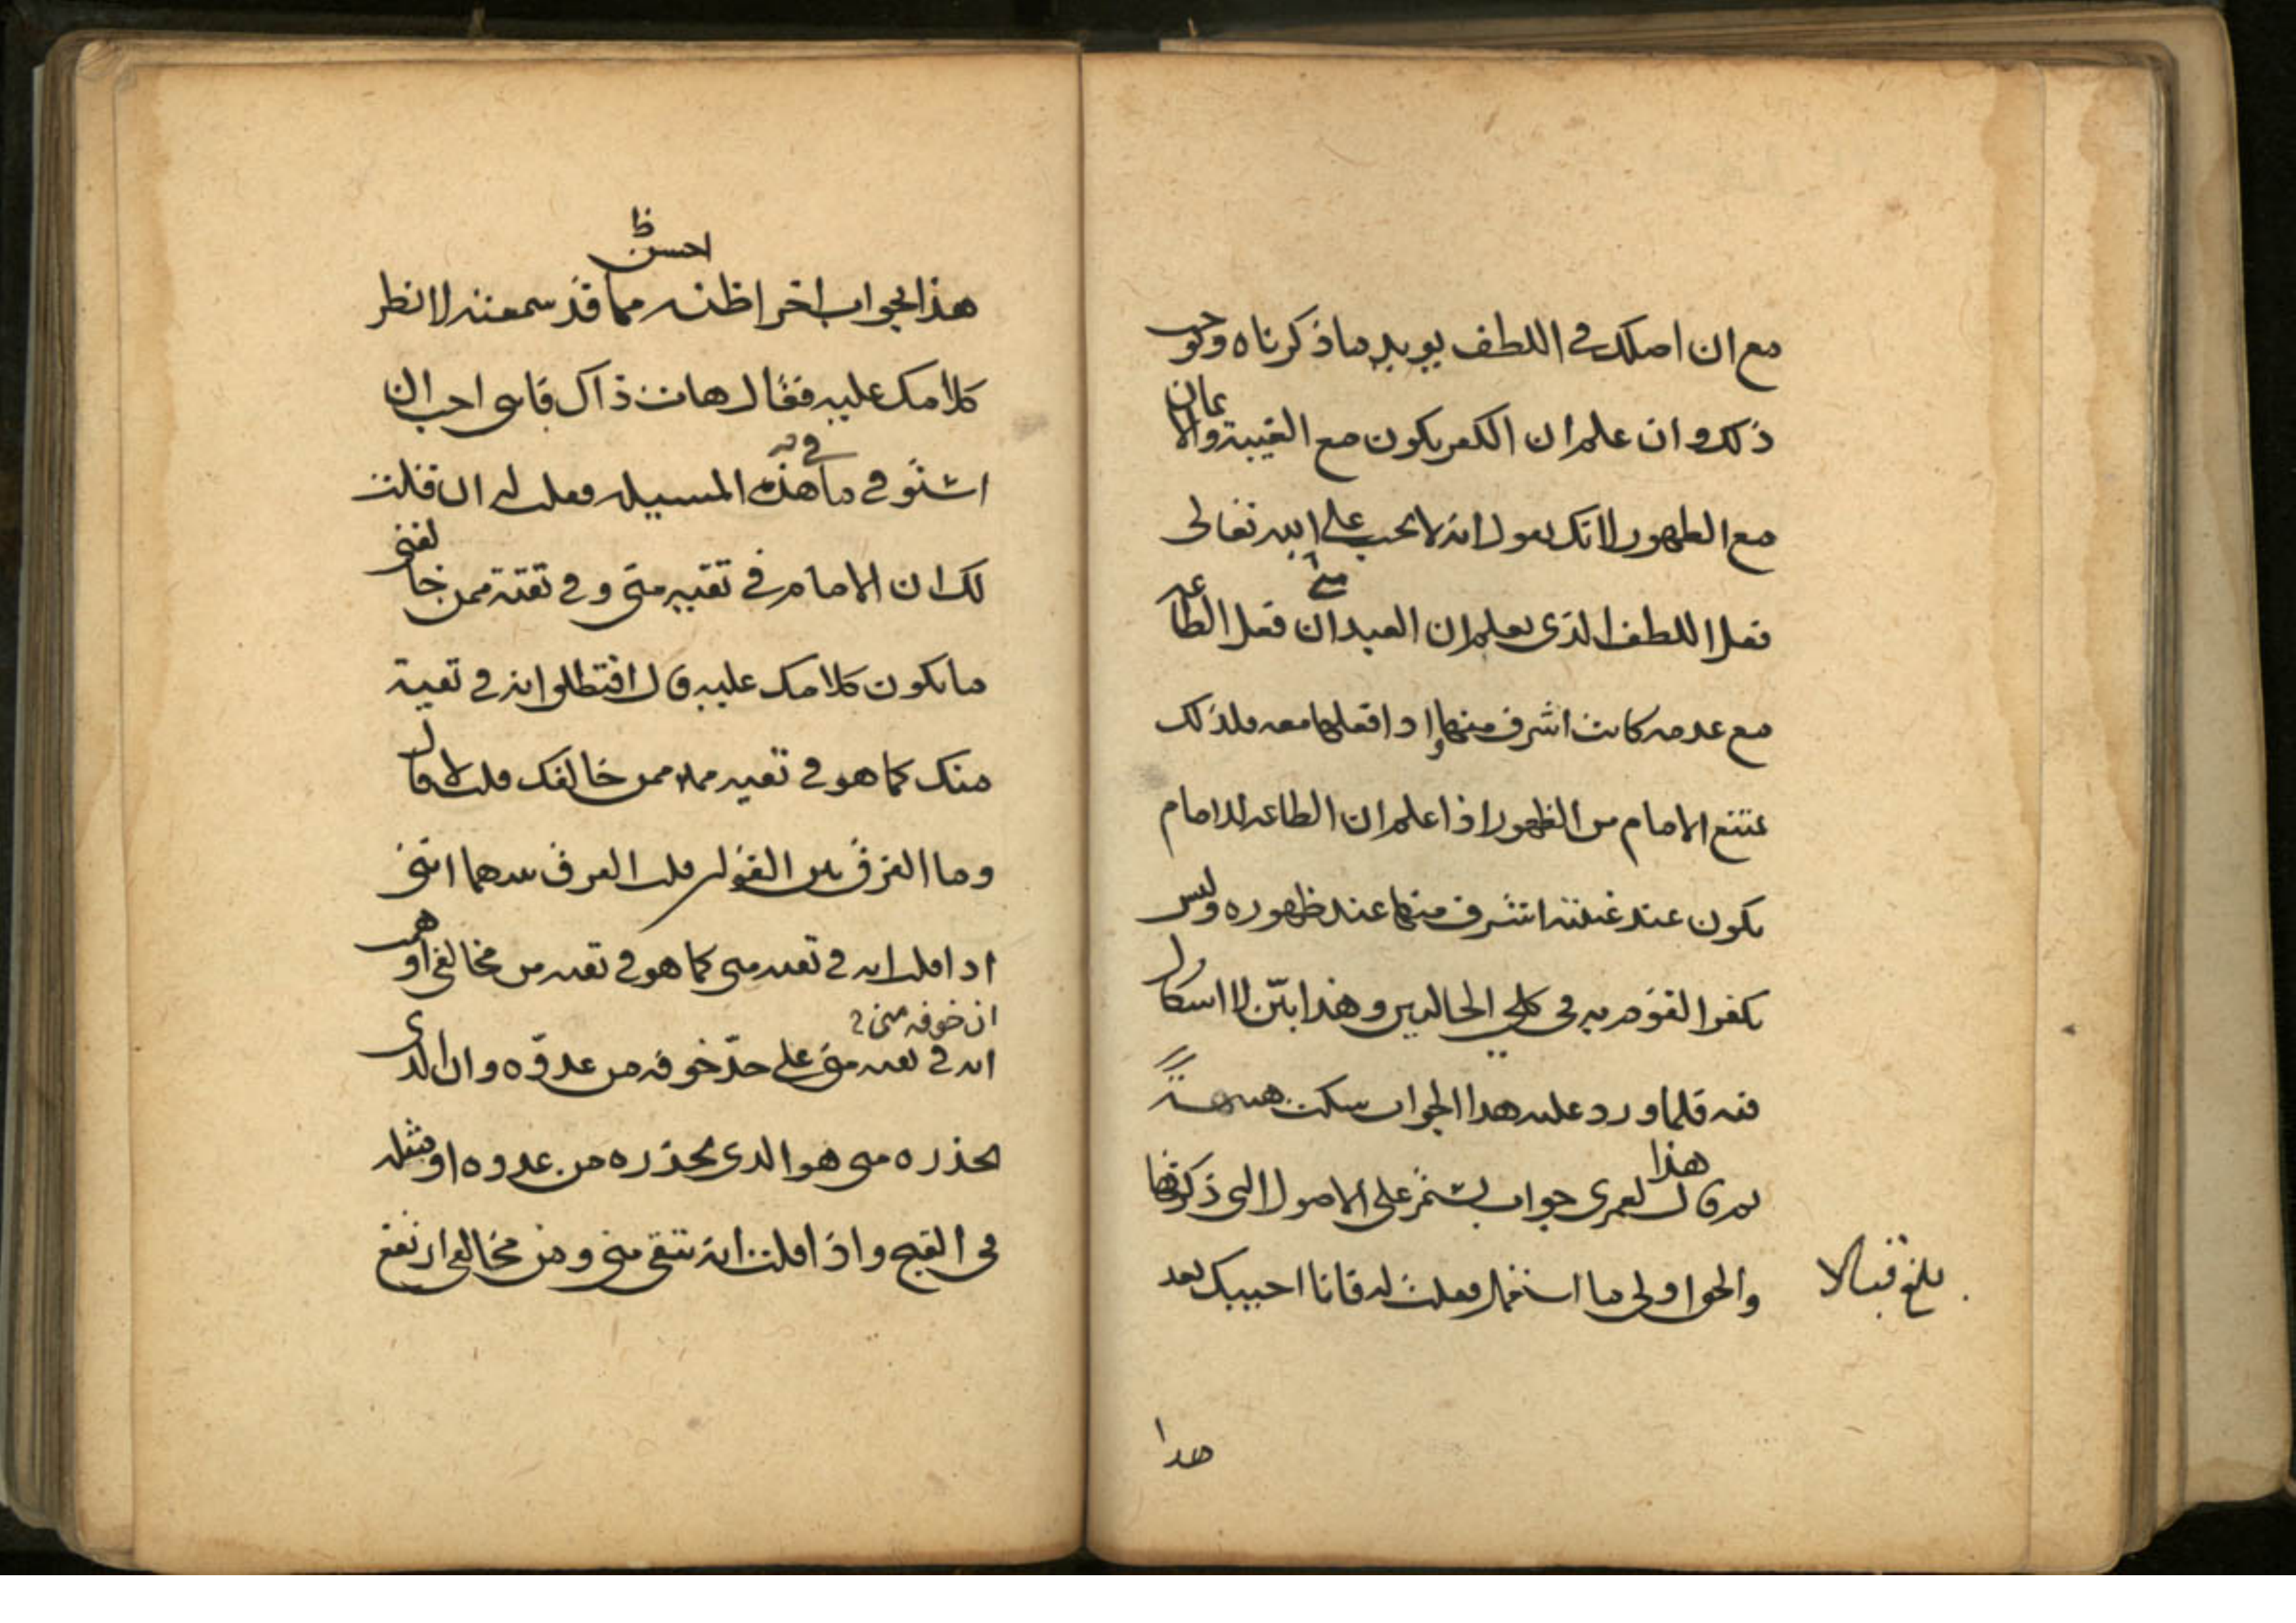 مع ان اصلك في اللطف يويد ما ذكرناه وحوب
ذلك وان علم ان الكفر يكون مع الغيبة والا
يمان
مع الظهور لانك تقول انه لا يجب على الله تعالى
فعل اللطف الذي يعلم ان العبد ان فعل الطاعه
مع عدمه كانت اشرف منها اذا فعلها معه فلذلك
يمتنع الامام من الظهور اذا علم ان الطاعه للامام
يكون عند غيبته اشرف منها عند ظهوره وليس
يكفر القوم به في كلي الحالين وهذا بيّن لا اسكال
فيه فلما ورد عليه هدا الجواب سكت هنيهة
هذا
ثم قال لعمري جواب يستمر على الاصول التي ذكرتها
والحق اولى ما استعمل فقلت له فانا اجيبك بعد
بلغ قبالا
هدا
احسن ظ
هذا الجواب اخر اظنه مما قد سمعته لانظر
كلامك عليه فقال هات ذاك فاني احب ان
استوفي ما في هذه المسيله فقلت له ان قلت
لك ان الامام في تقيه مني وفي تقية ممن خالفني
ما يكون كلامك عليه قال افتطلق انه في تقية
منك كما هو في تقيه ممن خالفك قلت لا قال
وما الفرق بين القولين قلت الفرق بينهما انني
اذا قلت انه في تقيه مني كما هو في تقيه من مخالفي اوهمت
ان خوفه مني
انه في تقيه مني على حدّ خوفه من عدوّه وان الذي
يحذره مني هو الذي يحذره من عدوه او مثله
في القبح واذا قلت انه يتقي مني ومن مخالفي ارتفع